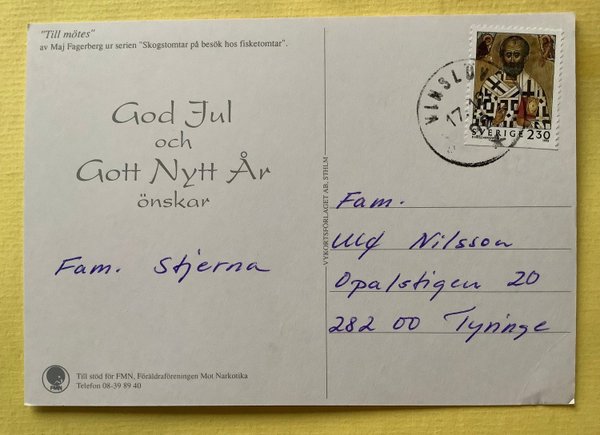 "Till mötes"
av Maj Fagerberg ur serien "Skogstomtar på besök hos fisketomtar".
God Jul
och
Gott Nytt År
önskar
Fam. Stjerna
FMN
Till stöd för FMN, Föräldraföreningen Mot Narkotika
Telefon 08-39 89 40
VYKORTSFÖRLAGET AB, STHLM
VINSLÖV
17
SVERIGE 2.30
Fam.
Ulf Nilsson
Opalstigen 20
282 00 Tyringe